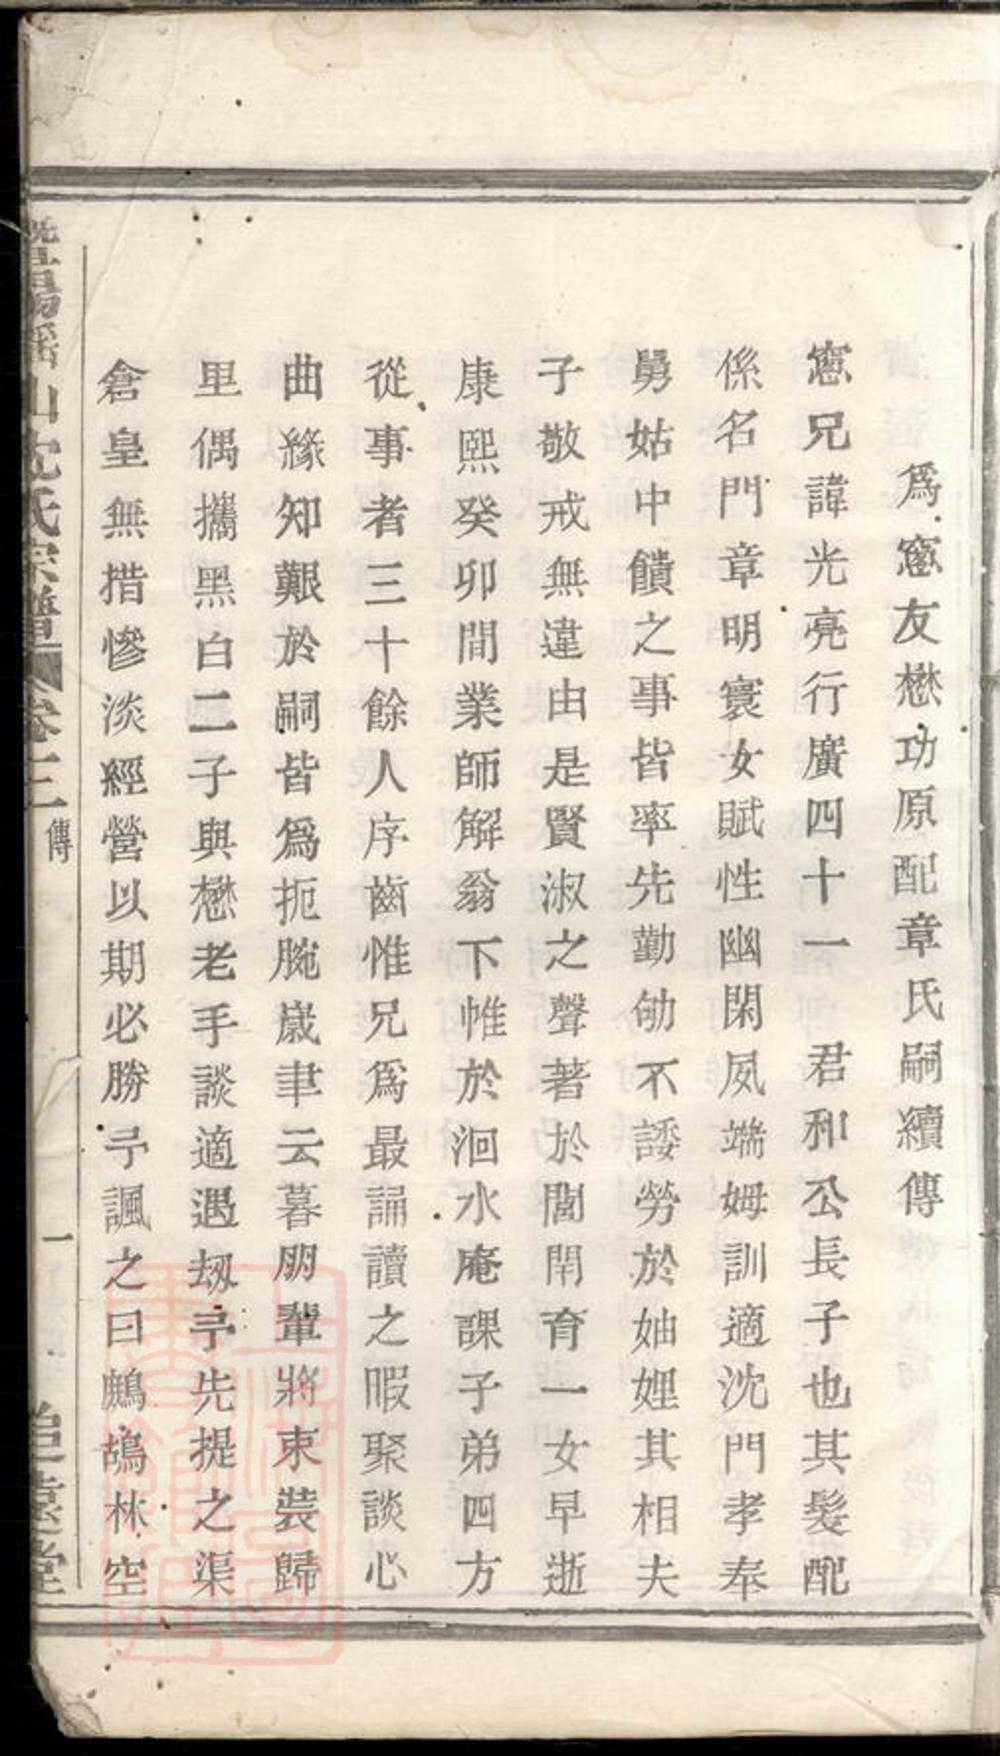 爲窓友懋功原配章氏嗣續傳
窓兄諱光亮行廣四十一 君和公長子也其髮配
係名門章明寰女賦性幽閑夙端姆訓適沈門孝奉
舅姑中饋之事皆率先勤劬不諉勞於妯娌其相夫
子敬戒無違由是賢淑之聲著於閭閈育一女早逝
康熙癸卯間業師解翁下帷於洄水庵課子弟四方
從事者三十餘人序齒惟兄爲最誦讀之暇聚談心
曲緣知艱於嗣皆爲扼腕嵗聿云暮朋輩將束裝歸
里偶攜黑白二子與懋老手談適遇刼予先提之渠
倉皇無措慘淡經營以期必勝予諷之曰鷓鴣林空
暨陽 山沈氏宗譜 卷三 傳 一 追遠堂